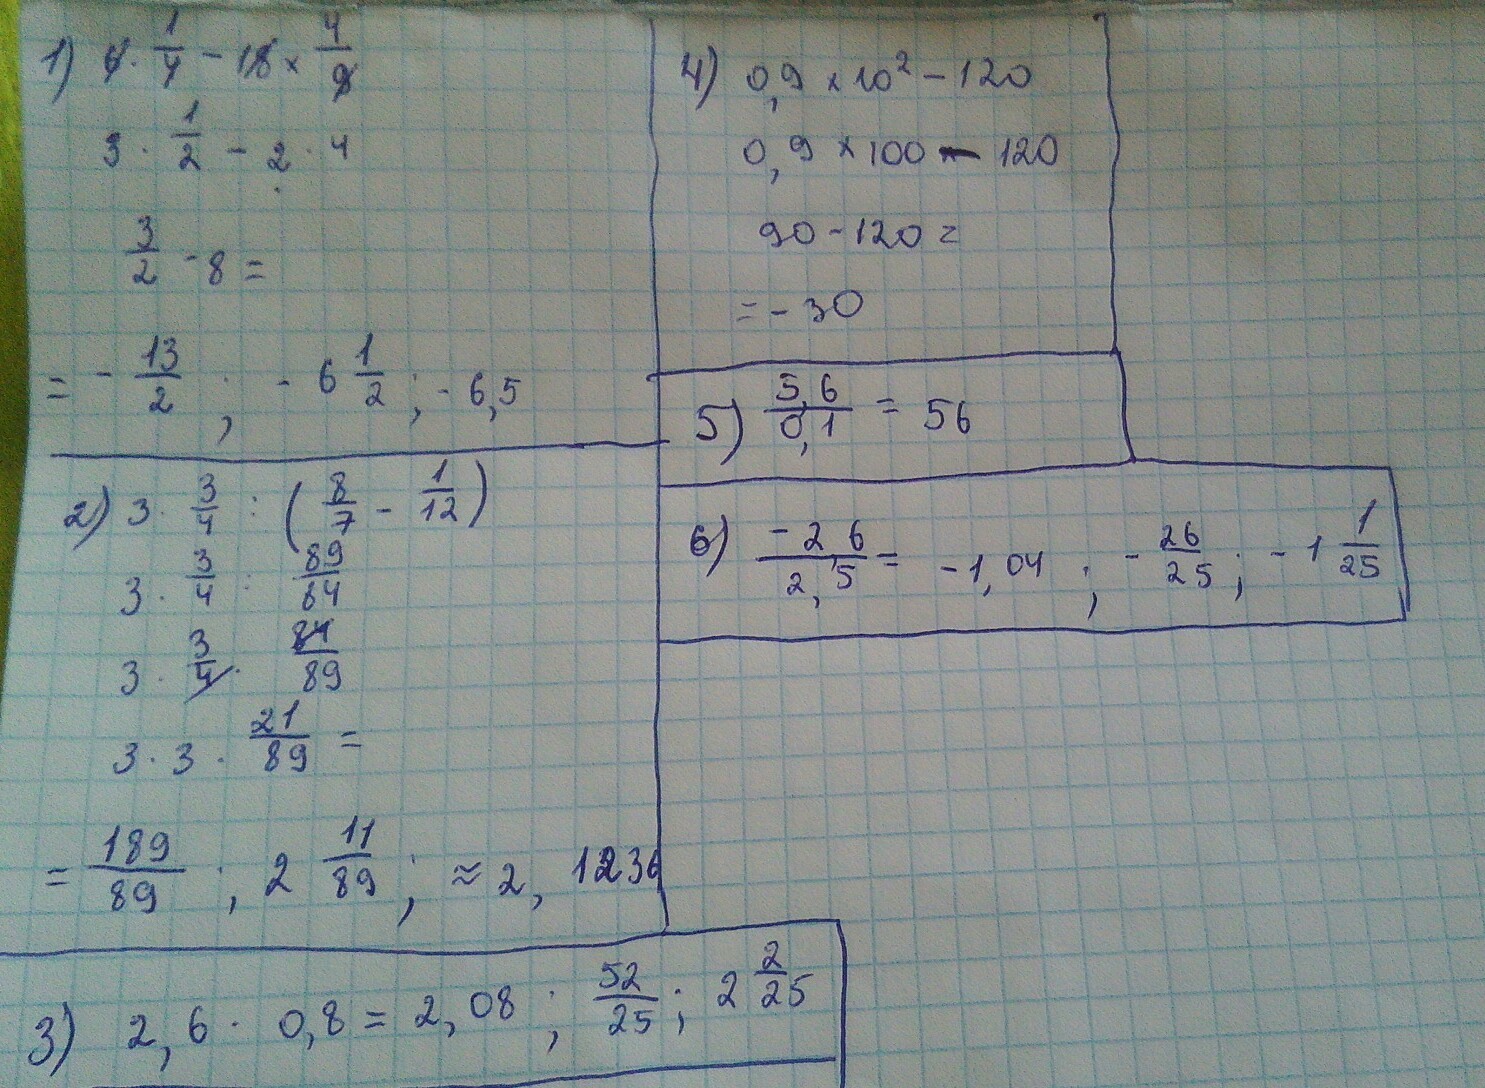 1) 6 · 1/4 − 18 × 4/9
3 · 1/2 − 2 · 4
3/2 - 8 =
= - 13/2 ; - 6 1/2 ; - 6,5
2) 3 · 3/4 : ( 8/7 - 1/12 )
3 · 3/4 : 89/84
3 · 3/4 · 84/89
3 · 3 · 21/89 =
= 189/89 ; 2 11/89 ; ≈ 2, 1236
3) 2,6 · 0,8 = 2,08 ; 52/25 ; 2 2/25
4) 0,9 × 10² − 120
0,9 × 100 − 120
90 - 120 =
= - 30
5) 5,6/0,1 = 56
6) -2 6/2,5 = -1,04 ; - 26/25 ; - 1 1/25